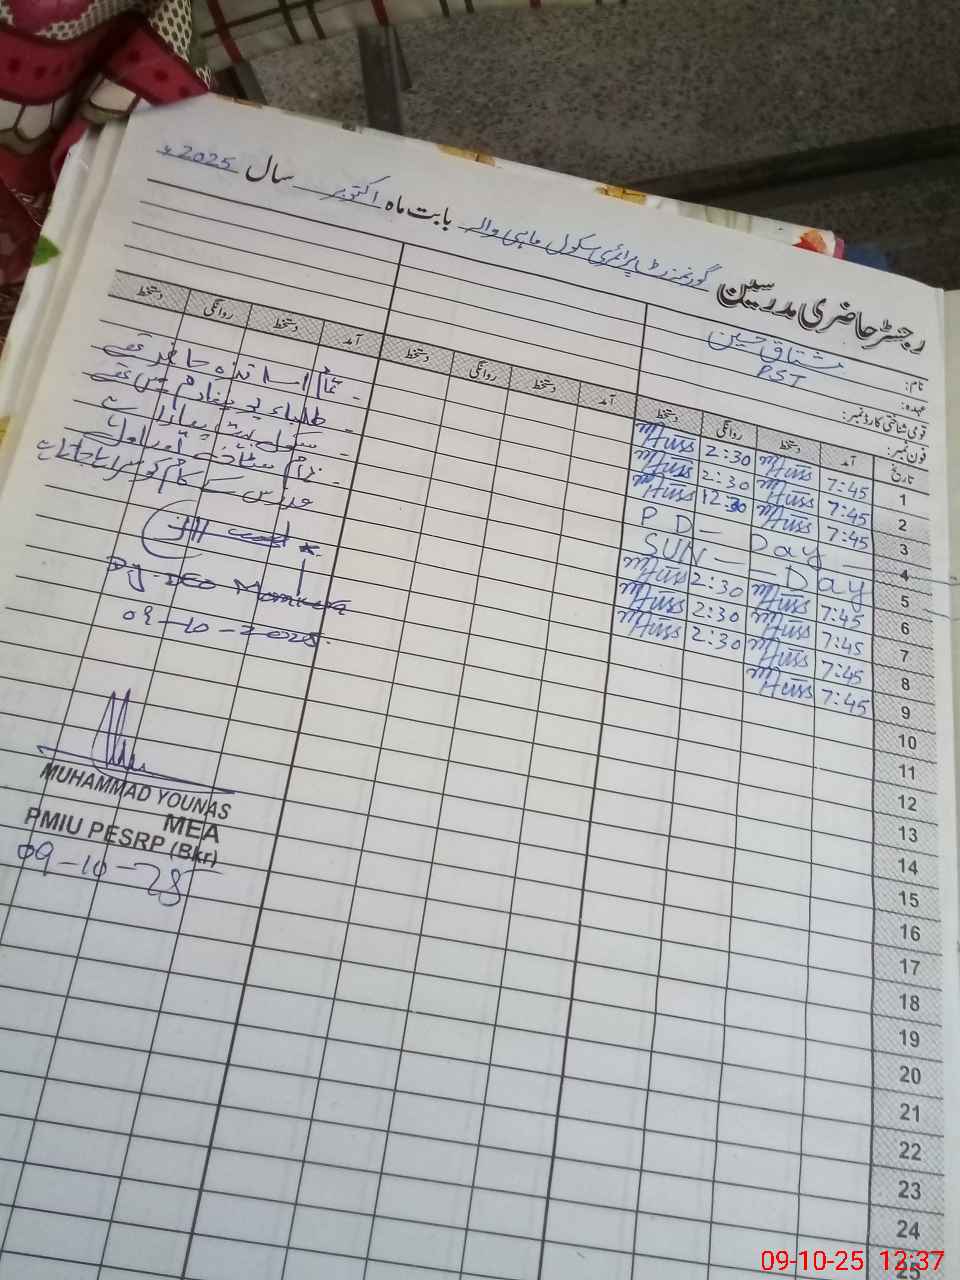 رجسٹر حاضری مدرسین گورنمنٹ پرائمری سکول ماہی والہ بابت ماہ اکتوبر سال 2025ء
نام: مشتاق حسین
عہدہ: PST
قومی شناختی کارڈ نمبر:
فون نمبر:
تاریخ آمد دستخط روانگی دستخط آمد دستخط روانگی دستخط آمد دستخط روانگی دستخط
1 7:45 MHuss 2:30 MHuss
2 7:45 MHuss 2:30 MHuss
3 7:45 MHuss 12:30 MHuss
4 PD - Day
5 SUN - Day
6 7:45 MHuss 2:30 MHuss
7 7:45 MHuss 2:30 MHuss
8 7:45 MHuss 2:30 MHuss
9 7:45 MHuss
10
11
12
13
14
15
16
17
18
19
20
21
22
23
24
25
- تمام اساتذہ حاضر تھے
- طلباء یونیفارم میں تھے
- سکول
- تمام سٹاف
مدرس کے کام کو سراہا جاتا ہے
Dy-DEO
09-10-2025
MUHAMMAD YOUNAS
MEA
PMIU PESRP (Bkr)
09-10-25
09-10-25 12:37